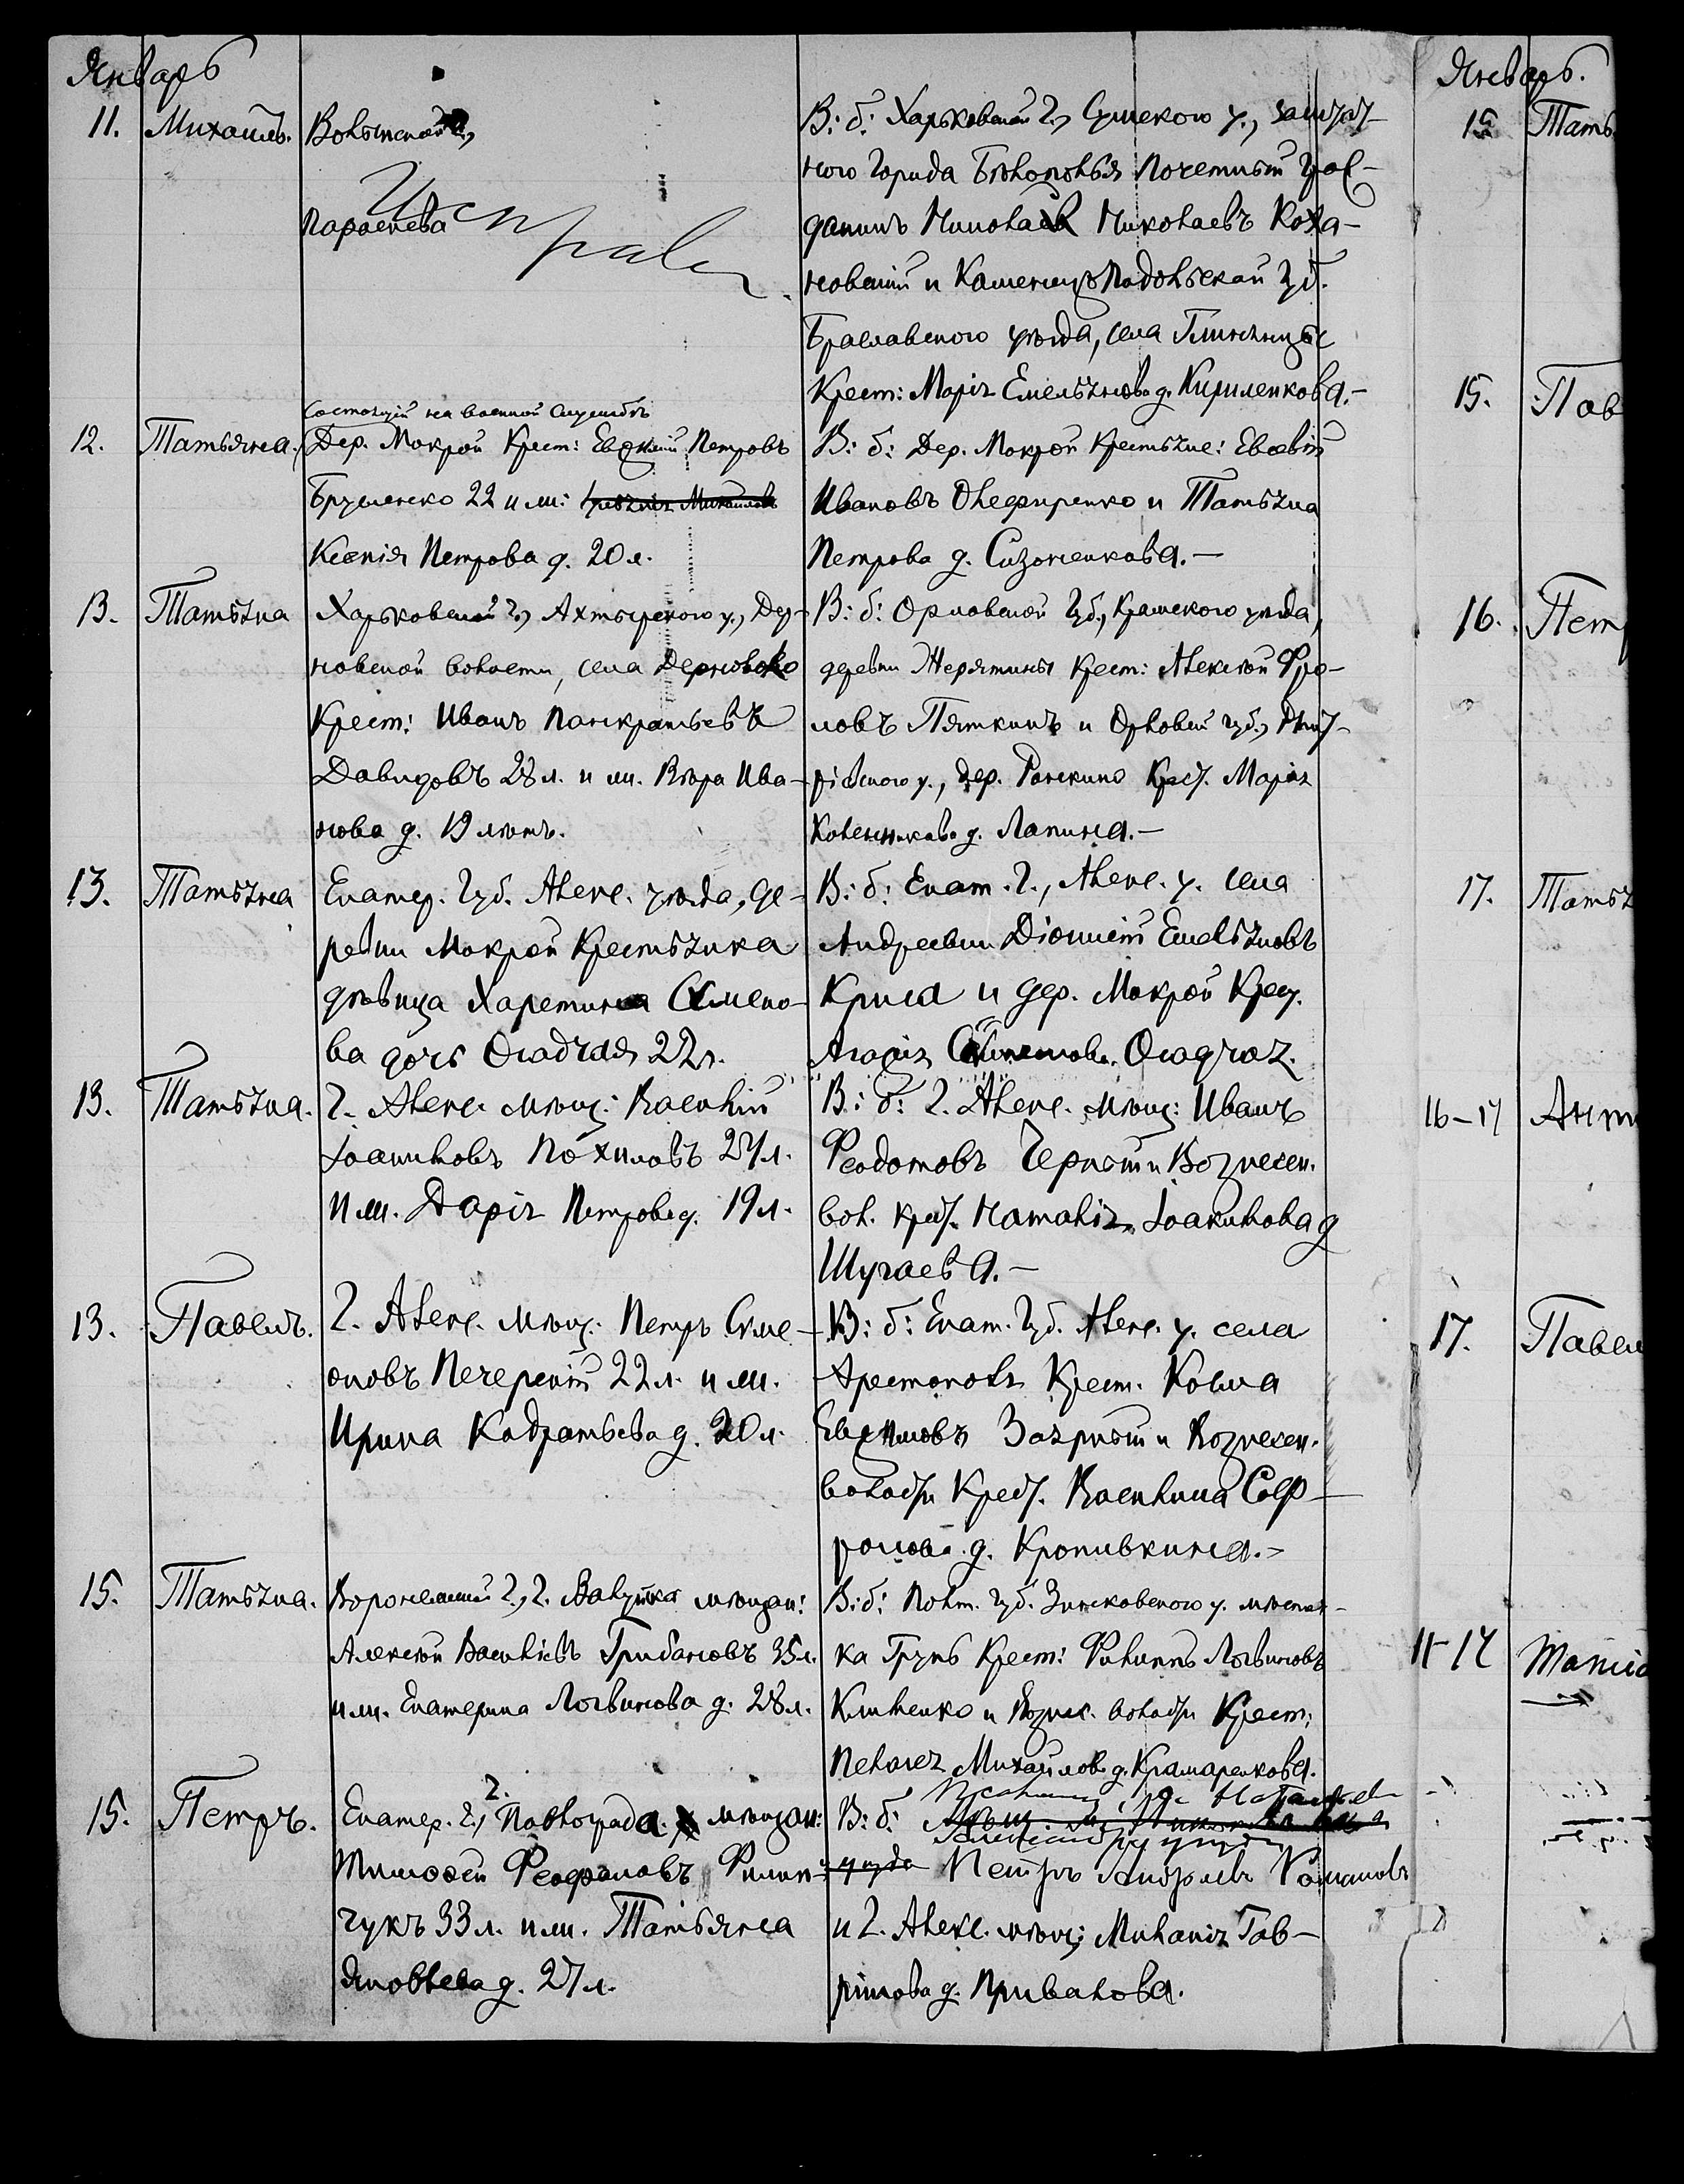 Январь
11. Михаилъ.
Волынской г.,
Параскева
В: б: Харьковской г., Сумского у., заштат-
ного города Бѣлополья Почетный Граж-
данинъ Николаевъ Николаевъ Коха-
новскій и Каменецъ Подольской губ.
Браславского уѣзда, села
Крест: Марія Емельянова д. Кириленкова.-
Состоящій на военной службѣ
12. Татьяна.
Дер. Мокрой Крест: Евфимій Петровъ
22 и ж:
Ксенія Петрова д. 20 л.
В: б: Дер. Мокрой Крестьяне: Евсевій
Ивановъ Олефиренко и Татьяна
Петрова д. Сизоненкова.-
13. Татьяна
Харьковской г., Ахтырского у., Дер-
новской волости, села Дернового
Крест: Иванъ Панкратьевъ
Давидовъ 28 л. и ж. Вѣра Ива-
нова д. 19 лѣтъ.
В: б: Орловской губ., Кромского уѣзда,
деревни Жерятины Крест: Алексѣй Фро-
ловъ Пяткинъ и Орловской губ., Дмит-
ріевского у., дер. Крест. Марія
д. Лапина.-
13. Татьяна
Екатер. Губ. Алекс. уѣзда, де-
ревни Мокрой Крестьянка
дѣвица Харетина Симено-
ва дочь Осадчая 22 л.
В: б: Екат. г., Алекс. у. села
Андреевки Діонисій Емельяновъ
и дер. Мокрой Крест.
Агафія Осадчая.
13. Татьяна.
г. Алекс. мѣщ: Василій
Іоакимовъ Похиловъ 27 л.
и ж. Дарія Петрова д. 19 л.
В: б: г. Алекс. мѣщ: Иванъ
Феодотовъ Черный и Вознесен.
вол. крест. Наталія Іоакимова д
Шугаева.-
13. Павелъ.
г. Алекс. мѣщ: Петръ Симе-
оновъ Печерскій 22 л. и ж.
Ирина Кодратьева д. 20 л.
В: б: Екат. губ. Алекс. у. села
Крест. Косма
Евфимовъ Заярный и Вознесен.
волости Крест. Василиса Соф-
ронова д. Кропивкина.-
15. Татьяна.
Воронежской г., г. Валуйка мѣщан:
Алексѣй Васильевъ Грибановъ 35 л.
и ж. Екатерина Логвинова д. 28 л.
В: б: Полт. губ. Зинковского у. мѣстеч-
ка Грунь Крест: Филиппъ Логвиновъ
Клименко и Вознес. волости Крест:
Пелагея Михайлова д. Крамаренкова.
15. Петръ.
Екатер. г., г. Павлограда мѣщан:
Тимофей Феофановъ Филип-
чукъ 33 л. и ж. Татьяна
Яковлева д. 27 л.
В: б:
уѣзда Петръ Андреевъ Романовъ
и г. Алекс. мѣщ: Миланія Гав-
рилова д. Привалова.
Январь.
15 Тать
15. Пав
16. Петр
17. Татья
16-17 Ант
17. Павел
11-17